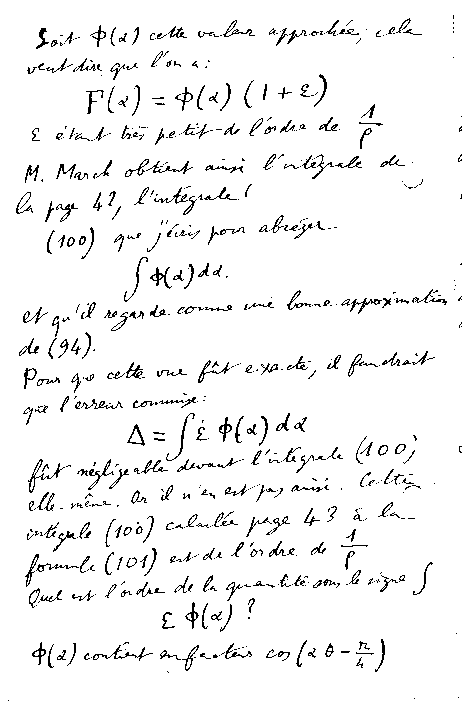 Soit Φ(α) cette valeur approchée, cela
veut dire que l'on a :
F(α) = Φ(α) (1 + ε)
ε étant très petit de l'ordre de 1/ρ
M. March obtient ainsi l'intégrale de
la page 42, l'intégrale
(100) que j'écris pour abréger
∫ Φ(α) dα.
et qu'il regarde comme une bonne approximation
de (94).
Pour que cette vue fût exacte, il faudrait
que l'erreur commise :
Δ = ∫ ε Φ(α) dα
fût négligeable devant l'intégrale (100)
elle-même. Or il n'en est pas ainsi. Cette
intégrale (100) calculée page 43 à la
formule (101) est de l'ordre de 1/ρ
Quel est l'ordre de la quantité sous le signe ∫
ε Φ(α) ?
Φ(α) contient en facteur cos (α θ - π/4)